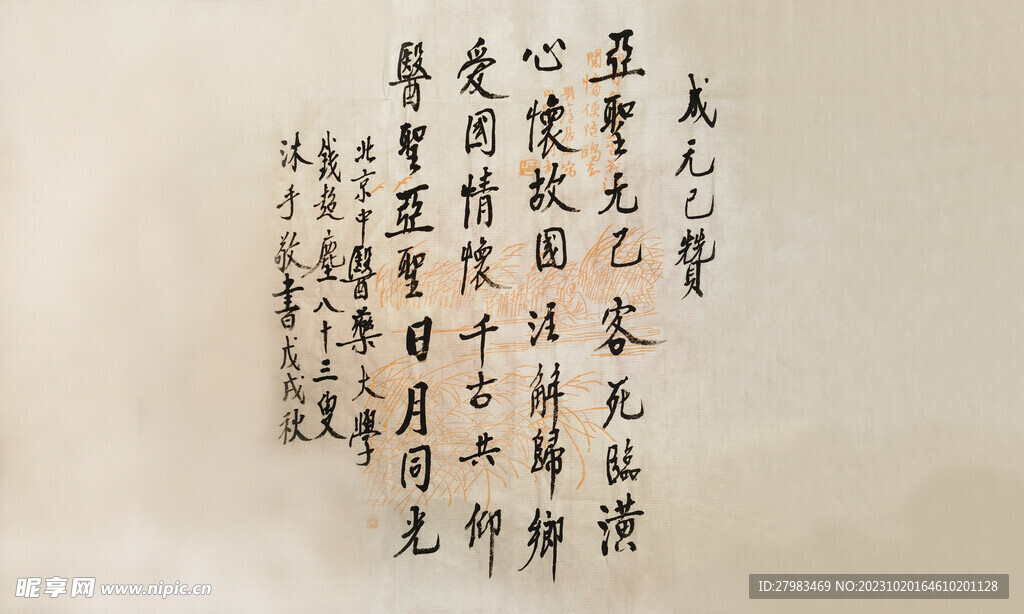 成无己贊
亞聖无己客死臨潢
心懷故國注解歸鄉
愛國情懷千古共仰
醫聖亞聖日月同光
北京中醫藥大學
錢超塵八十三叟
沐手敬書戊戌秋
昵享网 www.nipic.cn
ID:27983469 NO:20231020164610201128